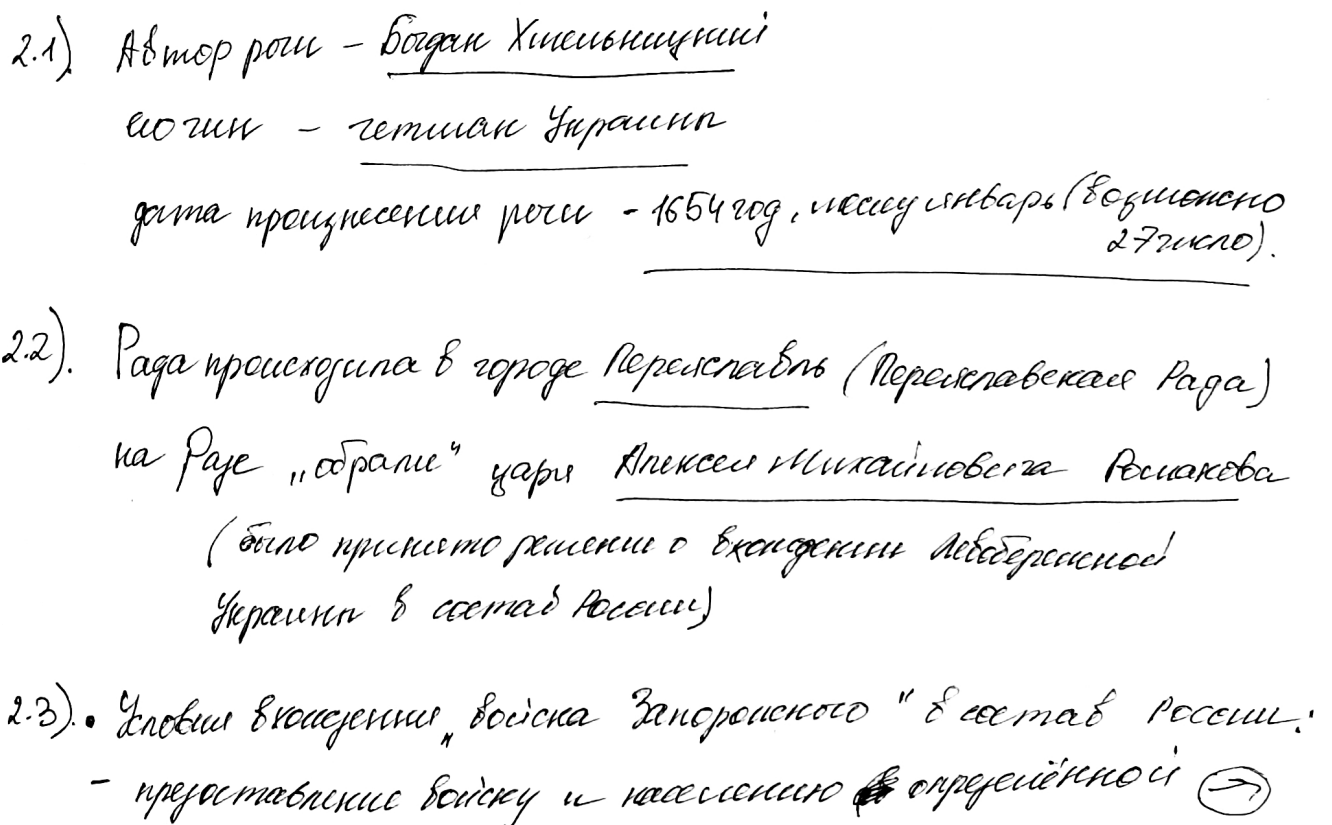 2.1). Автор речи – Богдан Хмельницкий
его чин – гетман Украины
дата произнесения речи – 1654 год, месяц январь (возможно
27 число).
2.2). Рада происходила в городе Переяславль (Переяславская Рада)
на Раде „обрали“ царя Алексея Михайловича Романова
(было принято решение о вхождении Левобережной
Украины в состав России)
2.3). • Условия вхождения „войска Запорожского“ в состав России:
– предоставление войску и населению определённой →